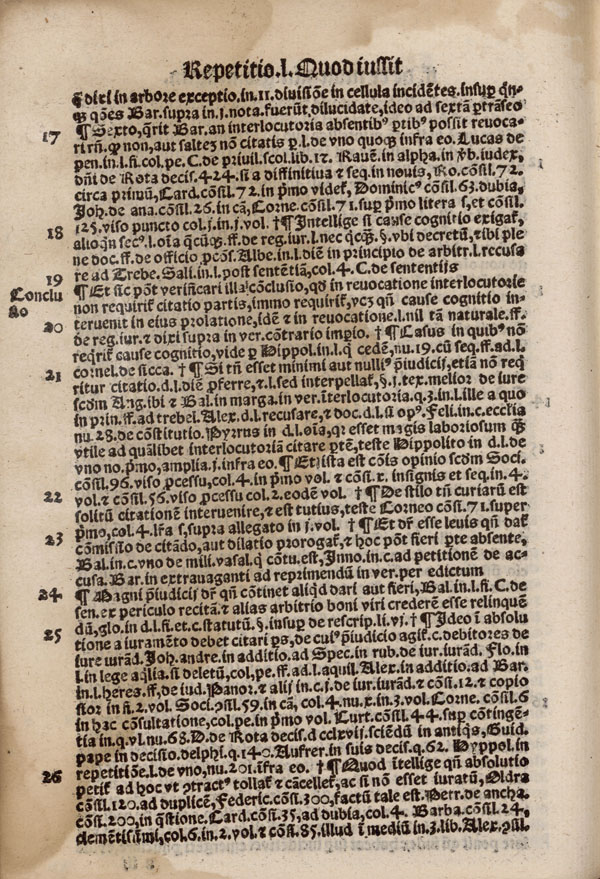 Repetitio.l.Quod iussit
¶ dixi in arbore exceptio.in.11.diuisiōe in cellula incidētes.insuꝑ qn̄-
qꝫ qōes Bar.supra in.j.nota.fuerūt,dilucidate,ideo ad sextā ꝑtrāseo
17 ¶ Sexto,q̄rit Bar.an interlocutoria absentibꝰ ꝑtibꝰ possit reuoca-
ri rn̄.ꝙ non,aut saltez nō citatis ꝑ.l.de vno quoqꝫ infra eo. Lucas de
pen.in.l.fi.col.pe.C.de priuil.scol.lib.12. Rauē.in alpha.in ꝟb.iudex,
dn̄i de Rota decis.424.si a diffinitiua ⁊ seq.in nouis, Ro.cōsil.72.
circa primū, Card.cōsil.72.in p̄mo videt̄, Dominicꝰ cōsil.63.dubia,
Joh.de ana.cōsil.26.in cā, Corne.cōsil.71.suꝑ p̄mo litera s, et cōsil.
125.viso puncto col.j.in.j.vol. †¶ Intellige si cause cognitio exigat̄,
18 alioqn̄ secꝰ.l.oīa q̄cūqꝫ.ff.de reg.iur.l.nec qcqꝫ.§.vbi decretū, tibi ple
ne doc.ff.de officio ꝓcōs. Albe.in.l.diem in principio de arbitr.l.recusa
re ad Trebe. Sali.in.l.post sentētiā, col.4.C.de sententijs
19 ¶ Et sic pōt verificari illa cōclusio, qd̄ in reuocatione interlocutorie
Conclu
sio
non requirit̄ citatio partis, immo requirit̄, vcꝫ qn̄ cause cognitio in-
20 teruenit in eius prolatione, idē ⁊ in reuocatione.l.nil tā naturale.ff.
de reg.iur.⁊ dixi supra in ver.contrario imꝑio. †¶ Casus in quibꝰ nō
req̄rit̄ cause cognitio, vide ꝑ Hippol.in.l.q̄ cedē,nu.19.cū seq.ff.ad.l.
cornel.de sicca. †¶ Si tn̄ esset minimi aut nulliꝰ p̄iudicij, etiā nō req̄
21 ritur citatio.d.l.diē ꝓferre, ⁊.l.sed interpellat̄, §.j.tex.melior de iure
scd̄m Ang.ibi ⁊ Bal.in marga.in ver.īterlocutoria.q.3.in.l.ille a quo
in prin.ff.ad trebel. Alex.d.l.recusare, ⁊ doc.d.l.si opꝰ. Feli.in.c.ecclīa
nu.28.de cōstitutio. Pyrrus in d.l.oīa, qr esset magis laboriosum qꝫ
vtile ad quālibet interlocutoriā citare ꝑtē, teste Hippolito in d.l.de
vno no.p̄mo, amplia.j.infra eo. ¶ Et ista est cōis opinio scd̄m Soci.
cōsil.96.viso ꝓcessu, col.4.in p̄mo vol ⁊ cōsil.x.insignis et seq.in.4.
22 vol.⁊ cōsil.56.viso ꝓcessu col.2.eodē vol. †¶ De stilo tn̄ curiarū est
solitū citationē interuenire, ⁊ est tutius, teste Corneo cōsi.71.super
p̄mo, col.4.lr̄a s, supra allegato in.j.vol. †¶ Et dr̄ esse leuis qn̄ dat̄
23 cōmissio de citādo, aut dilatio prorogat̄, ⁊ hoc pōt fieri ꝑte absente,
Bal.in.c.vno de mili.vasal.q̄ cōtu.est, Inno.in.c.ad petitionē de ac-
cusa. Bar.in extrauaganti ad reprimendū in ver.per edictum
24 ¶ Magni p̄iudicij dr̄ qn̄ cōtinet aliqd dari aut fieri, Bal.in.l.fi.C.de
sen.ex periculo recitā.⁊ alias arbitrio boni viri crederē esse relinquē
dū, glo.in d.l.fi.et.c.statutū.§.insuꝑ de rescrip.li.vj. †¶ Ideo ī absolu
25 tione a iuramēto debet citari ꝑs, de cuiꝰ p̄iudicio agit̄.c.debitores de
iure iurād. Joh.andre.in additio.ad Spec.in rub.de iur.iurād. Flo.in
l.in lege aqlia.si deletū, col.pe.ff.ad.l.aquil. Alex.in additio.ad Bar.
in.l.heres.ff.de iud. Panor.⁊ alij in.c.j.de iur.iurād.⁊ cōsi.12.⁊ copio
sior in fi.2.vol. Soci.ↄsil.59.in cā, col.4.nu.x.in.3.vol. Corne.cōsil.6
in hac cōsultatione, col.pe.in p̄mo vol. Curt.cōsil.44.suꝑ cōtingē-
tia in.q.vl.nu.68. D.de Rota decis.d cclxvij.sciēdū in antiqs, Guid.
pape in decisio.delphi.q.140. Aufrer.in suis decis.q.62. Hyppol.in
repetitiōe.l.de vno, nu.201.īfra eo. †¶ Quod ītellige qn̄ absolutio
26 petit̄ ad hoc vt ↄtractꝰ tollat̄ ⁊ cācellet̄, ac si nō esset iuratū, Oldra
cōsil.120.ad duplicē, Federic.cōsi.300,factū tale est. Petr.de ancha.
cōsil.200,in q̄stione. Card.cōsi.35,ad dubia,col.4. Barba.cōsil.24,
clemētissimi, col.6.in.2.vol.⁊ cōsi.85.illud ī mediū in.3.lib. Alex.ↄsil.